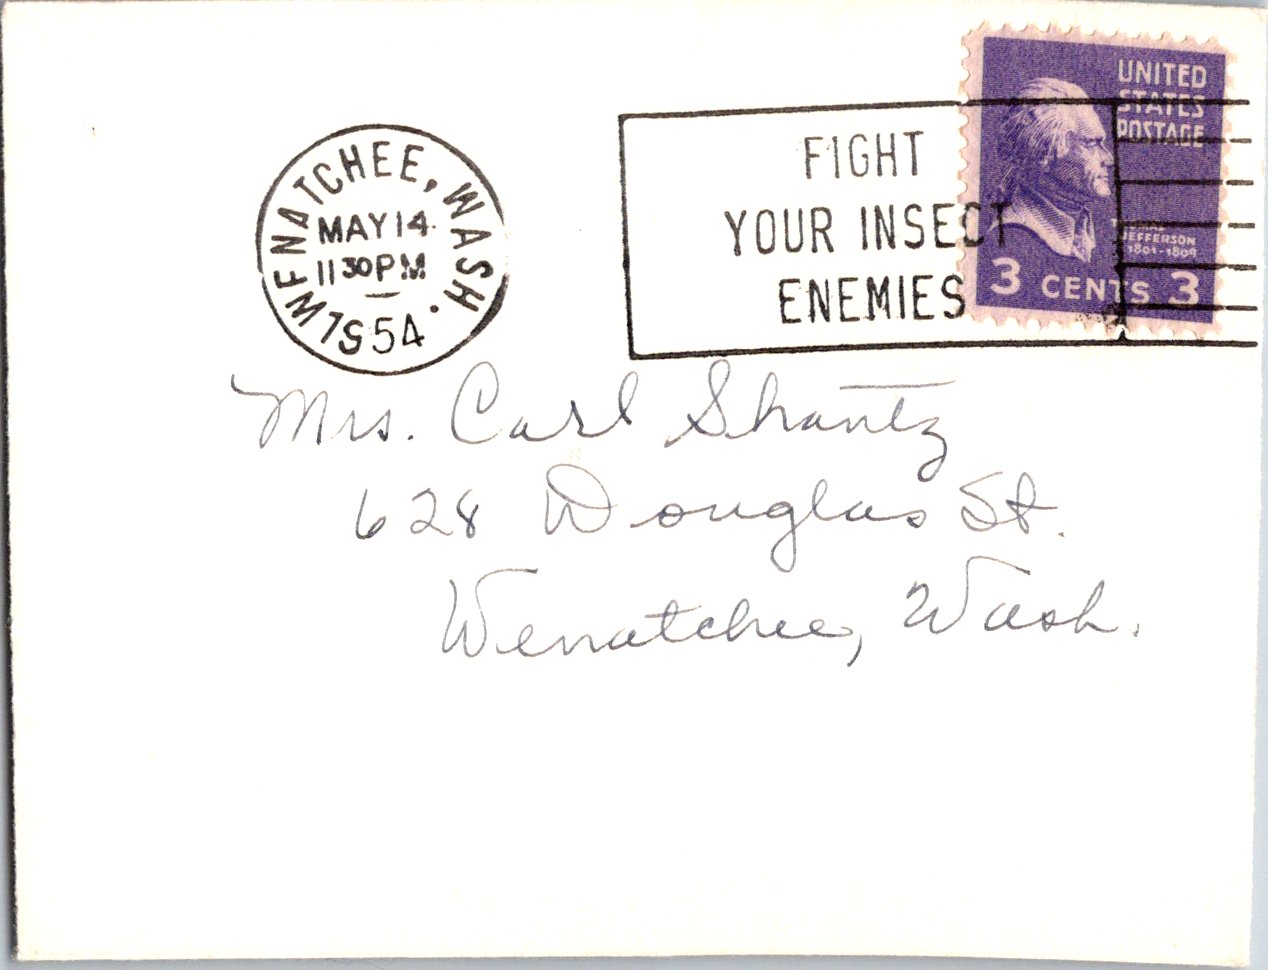 WENATCHEE, WASH.
MAY 14
11 30 PM
1954
FIGHT
YOUR INSECT
ENEMIES
UNITED
STATES
POSTAGE
THOMAS
JEFFERSON
1801-1809
3 CENTS 3
Mrs. Carl Shantz
628 Douglas St.
Wenatchee, Wash.